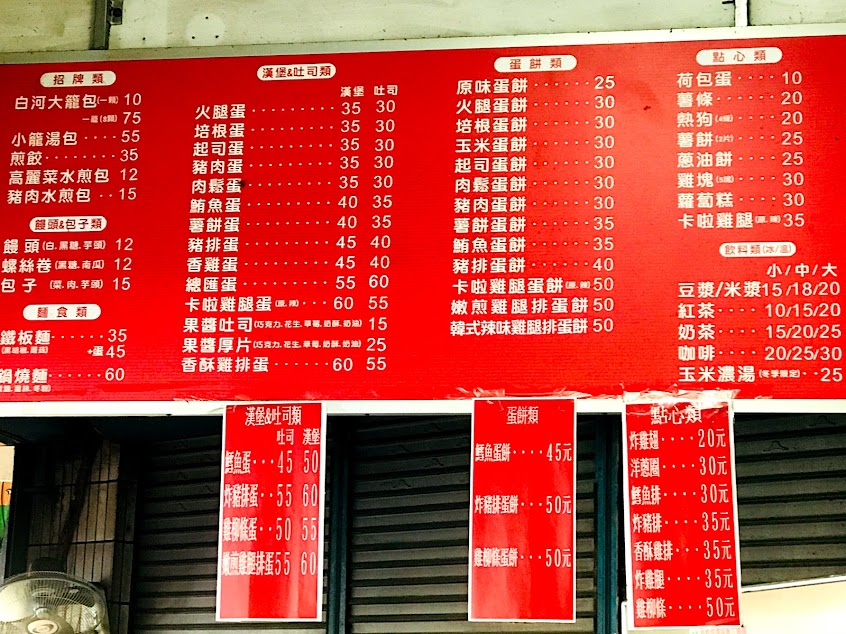 招牌類
白河大籠包(一顆) 10
一籠(8顆) 75
小籠湯包‥‥55
煎餃‥‥‥35
高麗菜水煎包 12
豬肉水煎包‥15
饅頭&包子類
饅頭(白.黑糖.芋頭) 12
螺絲卷(黑糖.南瓜) 12
包子(菜.肉.芋頭) 15
麵食類
鐵板麵‥‥‥35
(黑胡椒.蘑菇) +蛋45
鍋燒麵‥‥‥60
漢堡&吐司類
漢堡 吐司
火腿蛋‥‥‥‥35 30
培根蛋‥‥‥‥35 30
起司蛋‥‥‥‥35 30
豬肉蛋‥‥‥‥35 30
肉鬆蛋‥‥‥‥35 30
鮪魚蛋‥‥‥‥40 35
薯餅蛋‥‥‥‥40 35
豬排蛋‥‥‥‥45 40
香雞蛋‥‥‥‥45 40
總匯蛋‥‥‥‥55 60
卡啦雞腿蛋(原.辣)‥60 55
果醬吐司(巧克力.花生.草莓.奶酥.奶油) 15
果醬厚片(巧克力.花生.草莓.奶酥.奶油) 25
香酥雞排蛋‥‥‥60 55
蛋餅類
原味蛋餅‥‥‥25
火腿蛋餅‥‥‥30
培根蛋餅‥‥‥30
玉米蛋餅‥‥‥30
起司蛋餅‥‥‥30
肉鬆蛋餅‥‥‥30
豬肉蛋餅‥‥‥30
薯餅蛋餅‥‥‥35
鮪魚蛋餅‥‥‥35
豬排蛋餅‥‥‥40
卡啦雞腿蛋餅(原.辣) 50
嫩煎雞腿排蛋餅 50
韓式辣味雞腿排蛋餅 50
點心類
荷包蛋‥‥10
薯條‥‥‥20
熱狗(4條)‥‥20
薯餅(2片)‥‥25
蔥油餅‥‥25
雞塊(5塊)‥‥30
蘿蔔糕‥‥30
卡啦雞腿(原.辣) 35
飲料類(冰/溫)
小/中/大
豆漿/米漿 15/18/20
紅茶‥‥‥10/15/20
奶茶‥‥‥15/20/25
咖啡‥‥‥20/25/30
玉米濃湯(冬季限定)‥25
漢堡&吐司類
吐司 漢堡
鱈魚蛋‥‥45 50
炸豬排蛋‥55 60
雞柳條蛋‥50 55
嫩煎雞腿排蛋55 60
蛋餅類
鱈魚蛋餅‥‥45元
炸豬排蛋餅‥50元
雞柳條蛋餅‥50元
點心類
炸雞翅‥‥20元
洋蔥圈‥‥30元
鱈魚排‥‥30元
炸豬排‥‥35元
香酥雞排‥35元
炸雞腿‥‥35元
雞柳條‥‥50元